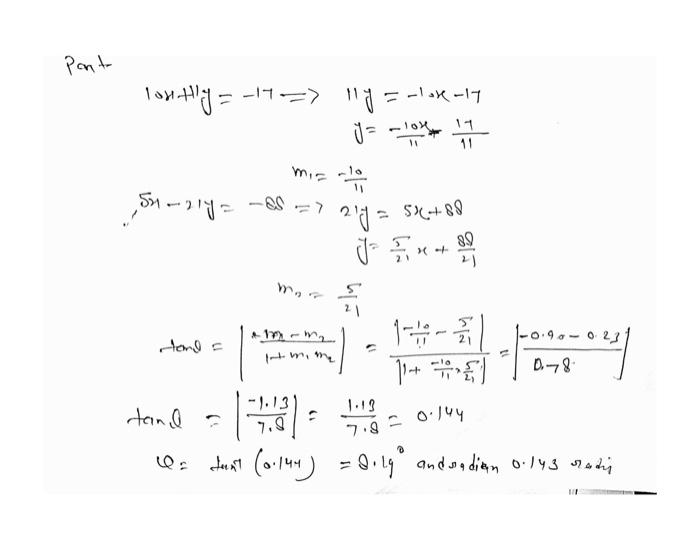 Part
10x+11y = -17 => 11y = -10x - 17
y = -10x/11 - 17/11
m₁ = -10/11
5x - 21y = -88 => 21y = 5x + 88
y = 5/21 x + 88/21
m₂ = 5/21
tanθ = |(m₁ - m₂)/(1 + m₁m₂)| = |-10/11 - 5/21|/|1 + -10/11 × 5/21| = |(-0.90 - 0.23)/0.78|
tanθ = |-1.13/7.8| = 1.13/7.8 = 0.144
θ = tan⁻¹(0.144) = 8.19° and radian 0.143